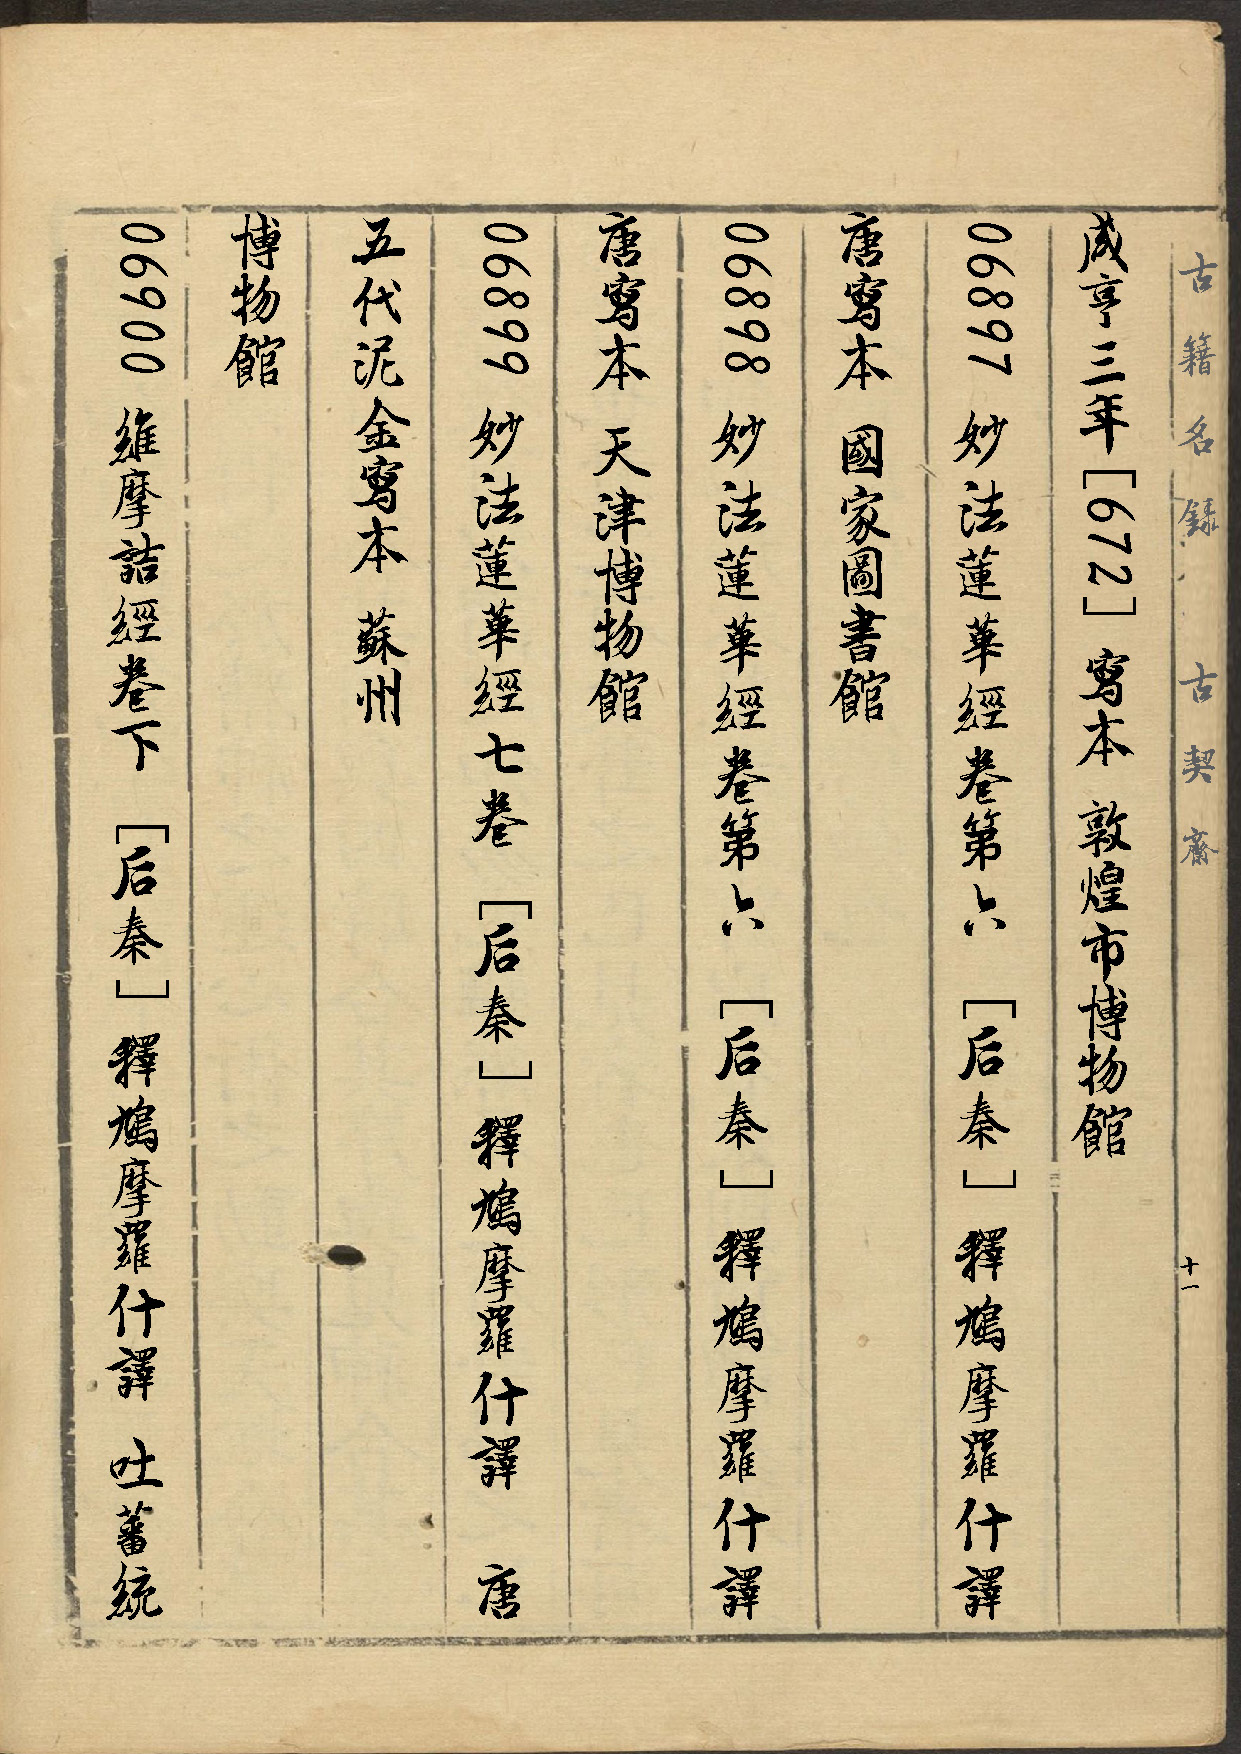 古籍名錄 古契齋
十一
咸亨三年[672] 寫本 敦煌市博物館
06897 妙法蓮華經卷第六 [后秦] 釋鳩摩羅什譯
唐寫本 國家圖書館
06898 妙法蓮華經卷第六 [后秦] 釋鳩摩羅什譯
唐寫本 天津博物館
06899 妙法蓮華經七卷 [后秦] 釋鳩摩羅什譯 唐
五代泥金寫本 蘇州
博物館
06900 維摩詰經卷下 [后秦] 釋鳩摩羅什譯 吐蕃統